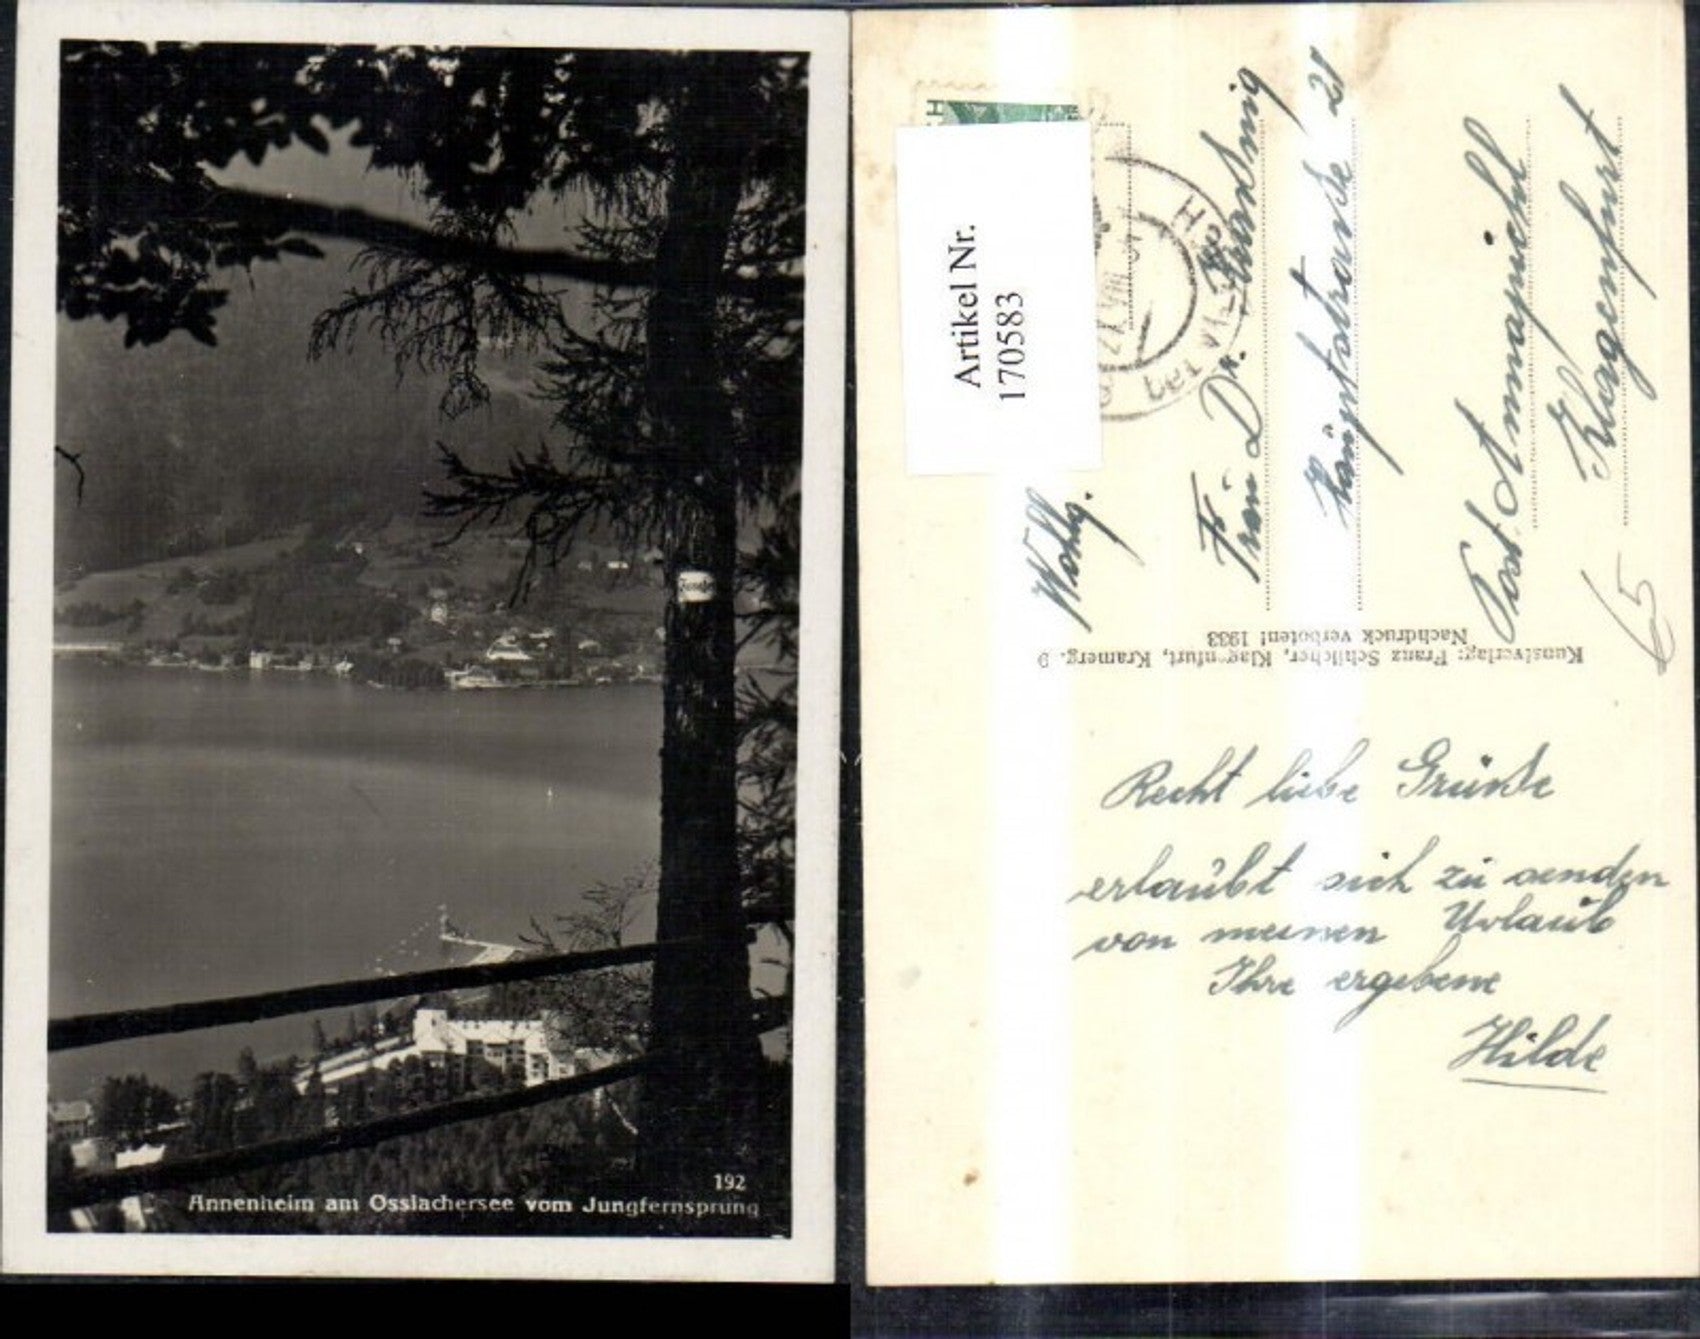 192
Annenheim am Ossiachersee vom Jungfernsprung
Artikel Nr.
170583
Wohlg.
Frau Dr.
Hauptstrasse 21
Post Ammapichl
Klagenfurt
65
Kunstverlag: Franz Schilcher, Klagenfurt, Kramerg. 9
Nachdruck verboten! 1933
Recht liebe Grüsse
erlaubt sich zu senden
von meinen Urlaub
Ihre ergebene
Hilde